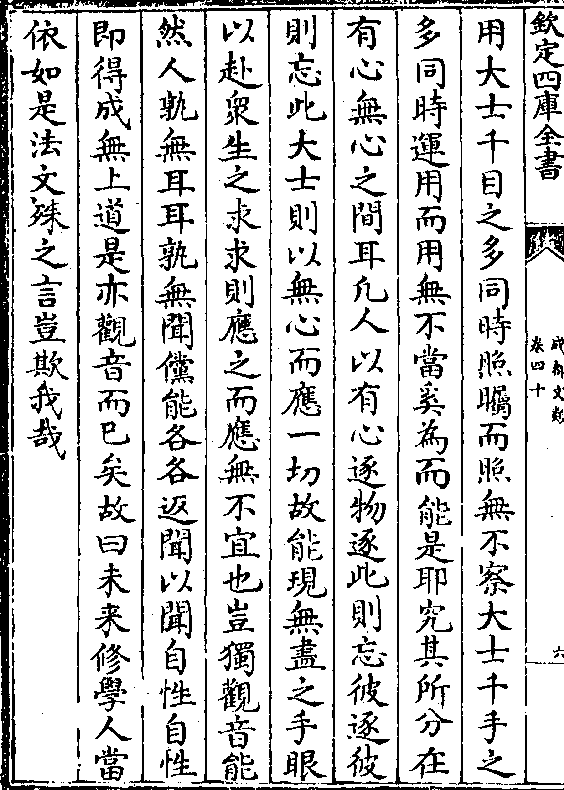 欽定四庫全書
成都文類
卷四十
六
用大士千目之多同時照矚而照無不察大士千手之
多同時運用而用無不當奚為而能是耶究其所分在
有心無心之間耳凡人以有心逐物逐此則忘彼逐彼
則忘此大士則以無心而應一切故能現無盡之手眼
以赴衆生之求求則應之而應無不宜也豈獨觀音能
然人孰無耳耳孰無聞儻能各各返聞以聞自性自性
即得成無上道是亦觀音而已矣故曰未来修學人當
依如是法文殊之言豈欺我哉